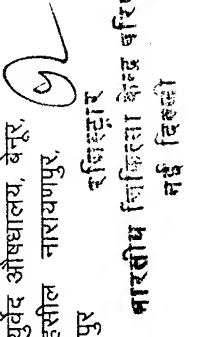 युर्वेद औषधालय, बेनूर,
हसील नारायणपुर,
पुर
रजिस्ट्रार
भारतीय चिकित्सा केन्द्र परि
नई दिल्ली